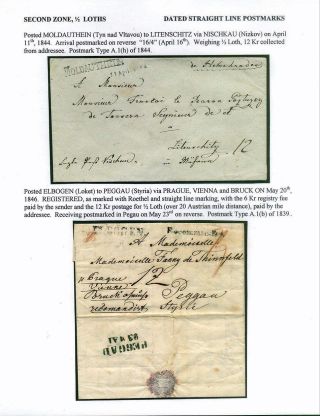 SECOND ZONE, ½ LOTHS
DATED STRAIGHT LINE POSTMARKS
Posted MOLDAUTHEIN (Tyn nad Vltavou) to LITENSCHITZ via NISCHKAU (Nizkov) on April
11th, 1844. Arrival postmarked on reverse "16/4" (April 16th). Weighing ½ Loth, 12 Kr collected
from addressee. Postmark Type A.1(h) of 1844.
MOLDAUTHEIN
A Monsieur
Monsieur
de
Seigneur de et
Litenschitz
12
Posted ELBOGEN (Loket) to PEGGAU (Styria) via PRAGUE, VIENNA and BRUCK ON May 20th,
1846. REGISTERED, as marked with Roethel and straight line marking, with the 6 Kr registry fee
paid by the sender and the 12 Kr postage for ½ Loth (over 20 Austrian mile distance), paid by the
addressee. Receiving postmarked in Pegau on May 23rd on reverse. Postmark Type A.1(b) of 1839.
ELBOGEN
A Mademoiselle
Mademoiselle Fanny de Thinnfeld
Prague
12
Vienne
Bruck
Peggau
Styrie
PEGGAU
23 MAI